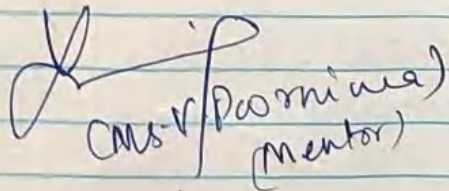 (Ms. V. Poornima)
(Mentor)